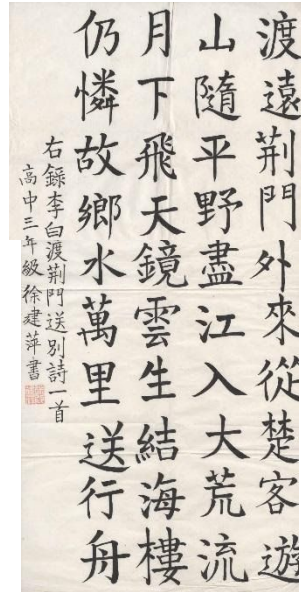 渡遠荆門外來從楚客遊
山隨平野盡江入大荒流
月下飛天鏡雲生結海樓
仍憐故鄉水萬里送行舟
右錄李白渡荆門送別詩一首
高中三年級徐建萍書